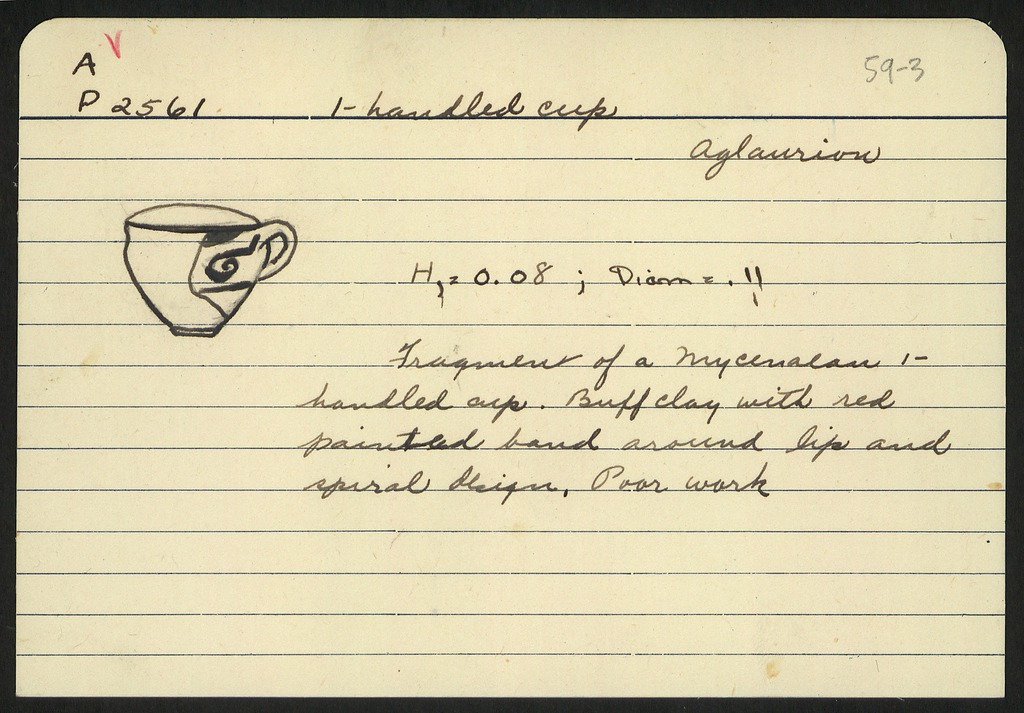 A
59-3
P 2561 1-handled cup
Aglaurion
H, = 0.08 ; Diam = .11
Fragment of a Mycenaean 1-
handled cup. Buff clay with red
painted band around lip and
spiral design. Poor work